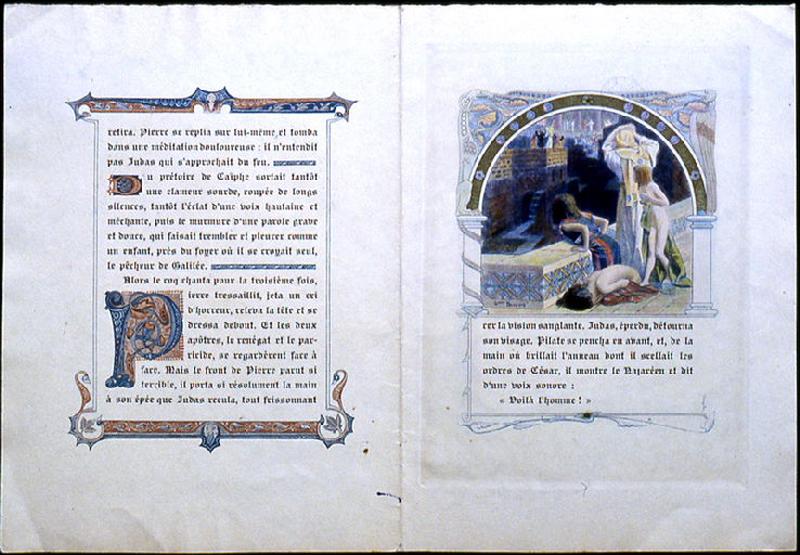 retira. Pierre se replia sur lui-même, et tomba
dans une méditation douloureuse : il n'entendit
pas Judas qui s'approchait du feu.
Du prétoire de Caïphe sortait tantôt
une clameur sourde, coupée de longs
silences, tantôt l'éclat d'une voix hautaine et
méchante, puis le murmure d'une parole grave
et douce, qui faisait trembler et pleurer comme
un enfant, près du foyer où il se croyait seul,
le pêcheur de Galilée.
Alors le coq chanta pour la troisième fois.
Pierre tressaillit, jeta un cri
d'horreur, releva la tête et se
dressa debout. Et les deux
apôtres, le renégat et le par-
ricide, se regardèrent face à
face. Mais le front de Pierre parut si
terrible, il porta si résolument la main
à son épée que Judas recula, tout frissonnant
cer la vision sanglante. Judas, éperdu, détourna
son visage. Pilate se pencha en avant, et, de la
main où brillait l'anneau dont il scellait les
ordres de César, il montre le Nazaréen et dit
d'une voix sonore :
« Voilà l'homme ! »